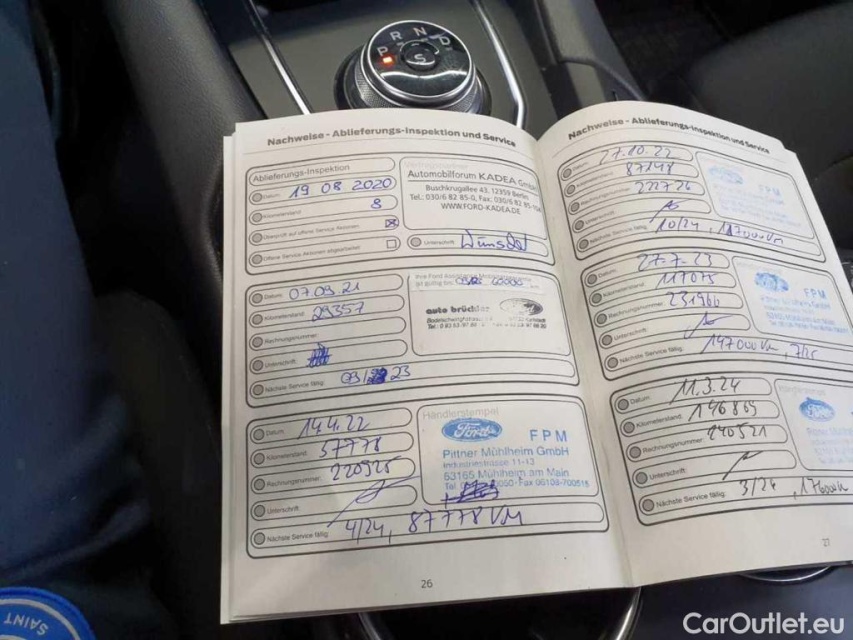 P R N D
S
Nachweise - Ablieferungs-Inspektion und Service
Ablieferungs-Inspektion
Datum: 19 08 2020
Kilometerstand: 8
Überprüft auf offene Service Aktionen
Offene Service Aktionen abgearbeitet
Automobilforum KADEA GmbH
Buschkrugallee 43, 12359 Berlin
Tel.: 030/6 82 85-0, Fax: 030/6 82 85-104
WWW.FORD-KADEA.DE
Unterschrift
Datum: 07.09.21
Kilometerstand: 29357
Rechnungsnummer:
Unterschrift:
Nächste Service fällig: 09/ 23
auto brückner
Datum: 14.4.22
Kilometerstand: 57778
Rechnungsnummer: 220925
Unterschrift:
Nächste Service fällig: 4/24, 87778 KM
Händlerstempel
Ford FPM
Pittner Mühlheim GmbH
Industriestrasse 11-13
63165 Mühlheim am Main
26
Nachweise - Ablieferungs-Inspektion und Service
Datum: 27.10.22
Kilometerstand: 87148
Rechnungsnummer: 222726
Unterschrift:
Nächste Service fällig: 10/24, 117000 km
FPM
Datum: 27.7.23
Kilometerstand: 117075
Rechnungsnummer: 231966
Unterschrift:
Nächste Service fällig: 147000 km, 7/25
FPM
Pittner Mühlheim GmbH
Datum: 11.3.24
Kilometerstand: 146865
Rechnungsnummer: 240521
Unterschrift:
Nächste Service fällig: 3/24
27
SAINT
CarOutlet.eu